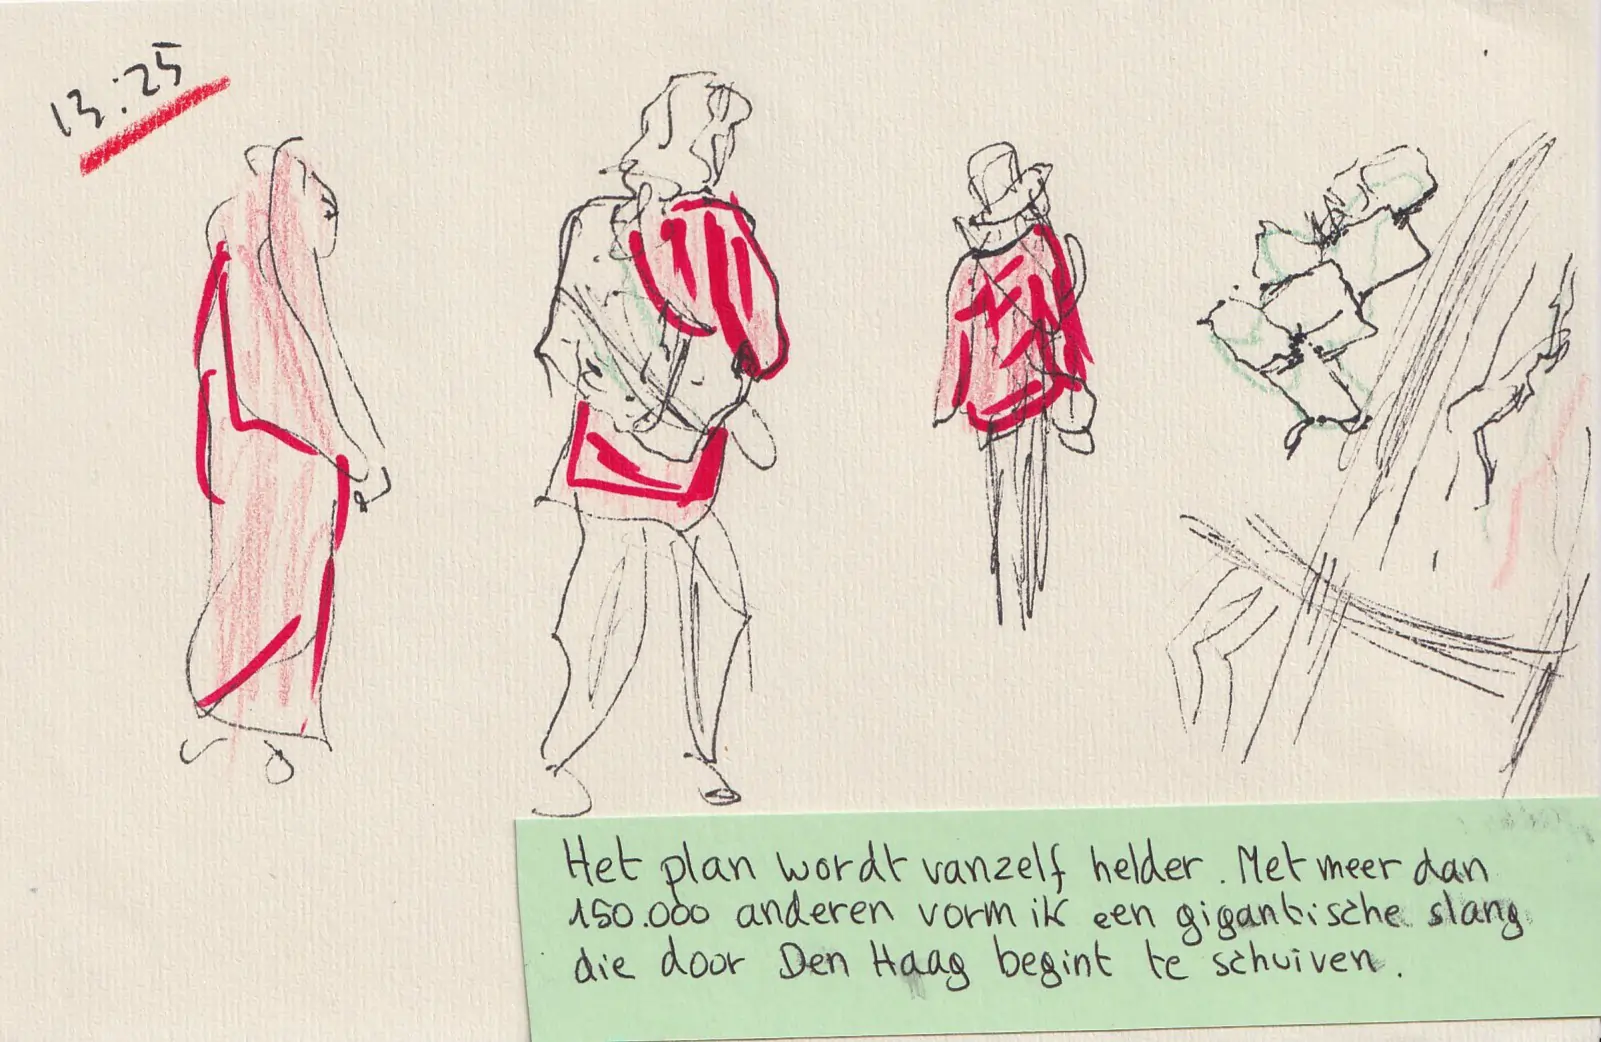 13:25
Het plan wordt vanzelf helder. Met meer dan
150.000 anderen vorm ik een gigantische slang
die door Den Haag begint te schuiven.